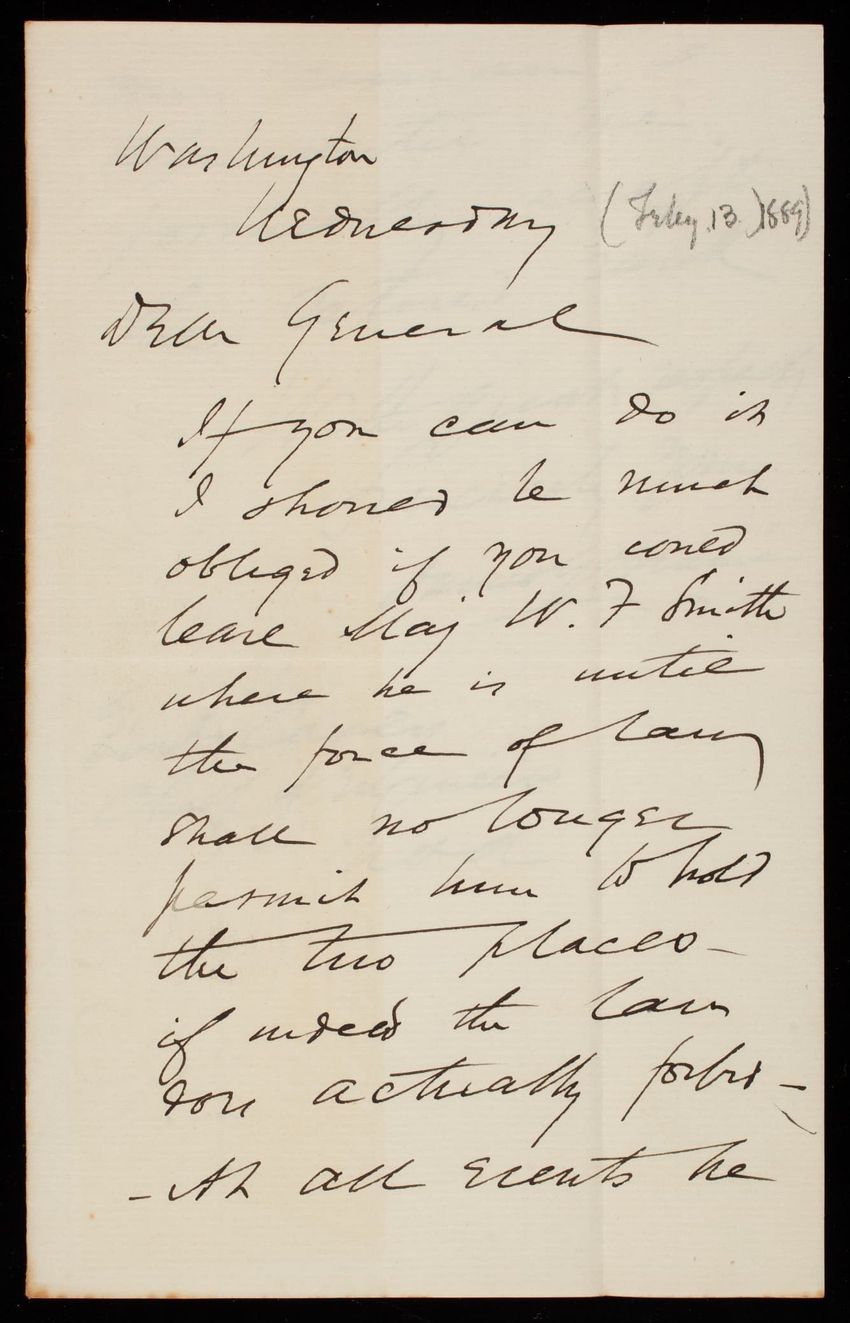 Washington
Wednesday (Feby. 13.) 1889)
Dear General
If you can do it
I should be much
obliged if you could
leave Maj W. F Smith
where he is until
the force of law
shall no longer
permit him to hold
the two places -
if indeed the law
does actually forbid -
- At all events he